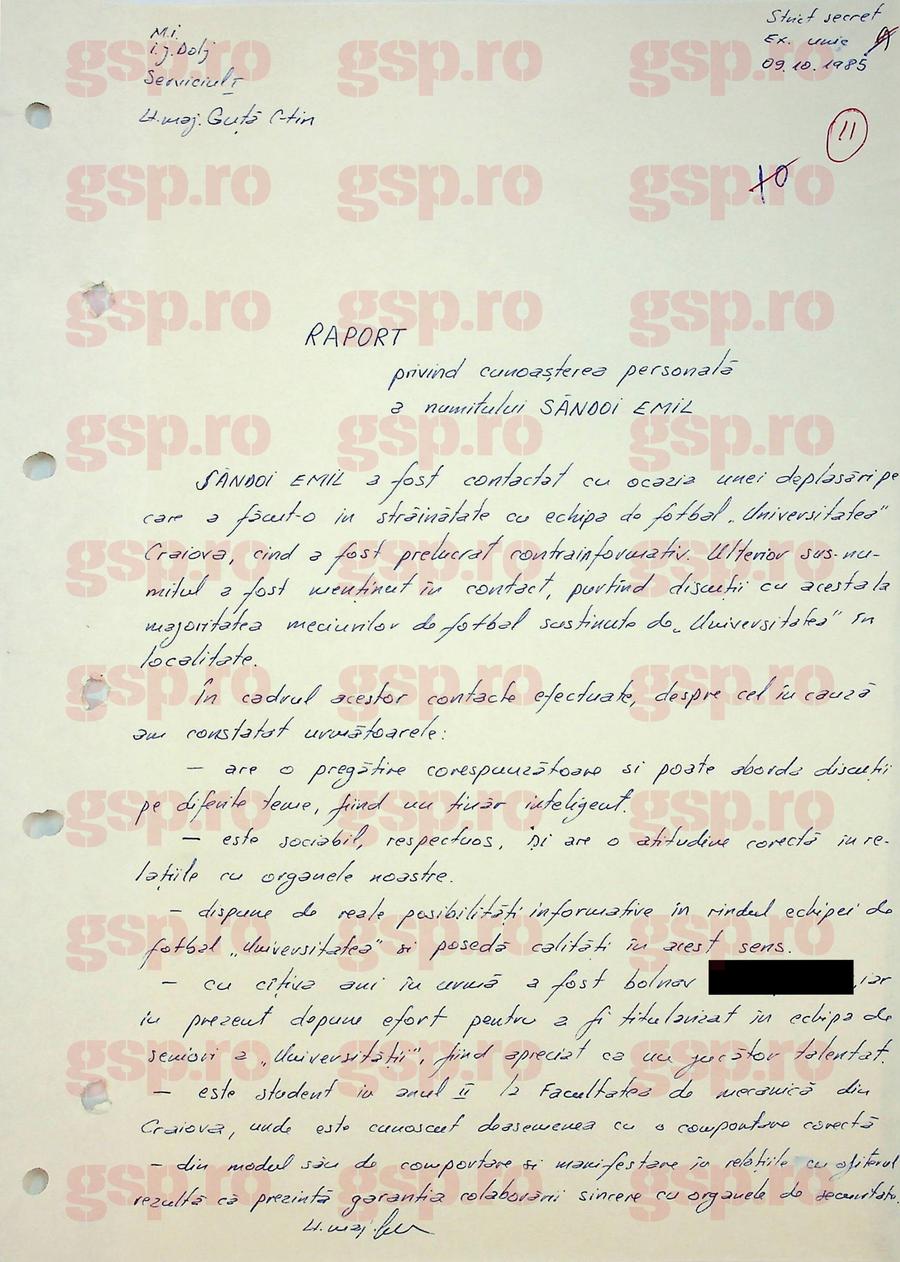 M.i.
i.j. Dolj
Serviciul I
Lt. maj. Guță C-tin
Strict secret
Ex. unic
09.10.1985
11
10
RAPORT
privind cunoașterea personală
a numitului SĂNDOI EMIL
SĂNDOI EMIL a fost contactat cu ocazia unei deplasări pe
care a făcut-o in străinătate cu echipa de fotbal „Universitatea"
Craiova, cind a fost prelucrat contrainformativ. Ulterior sus-nu-
mitul a fost menținut în contact, purtînd discuții cu acesta la
majoritatea meciurilor de fotbal sustinute de „Universitatea" în
localitate.
În cadrul acestor contacte efectuate, despre cel în cauză
am constatat următoarele:
- are o pregătire corespunzătoare si poate aborda discuții
pe diferite teme, fiind un tînăr inteligent.
- este sociabil, respectuos, își are o atitudine corectă in re-
lațiile cu organele noastre.
- dispune de reale posibilități informative în rîndul echipei de
fotbal „Universitatea" si posedă calități în acest sens.
- cu cîțiva ani în urmă a fost bolnav , iar
in prezent depune efort pentru a fi titularizat în echipa de
seniori a „Universității", fiind apreciat ca un jucător talentat.
- este student in anul II la Facultatea de mecanică din
Craiova, unde este cunoscut deasemenea cu o comportare corectă
- din modul său de comportare si manifestare în relațiile cu ofiterul
rezultă că prezintă garantia colaborării sincere cu organele de securitate.
Lt. maj.
gsp.ro